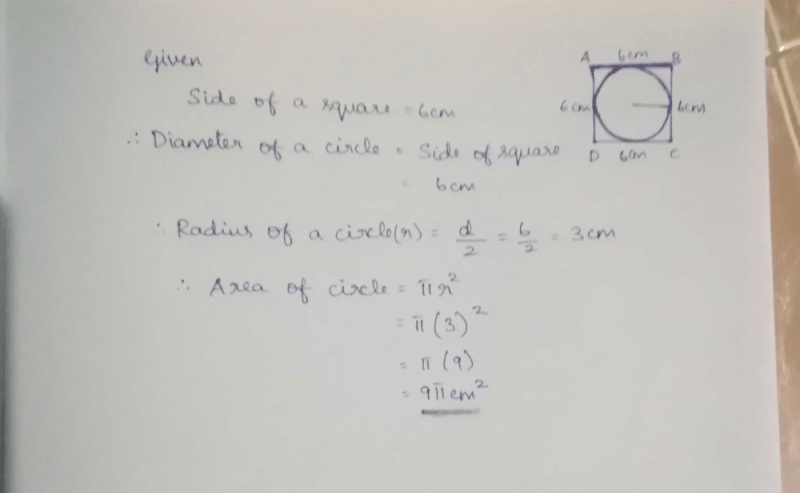 Given
A 6cm B
Side of a square = 6cm
6cm 6cm
∴ Diameter of a circle = Side of square
D 6cm C
= 6cm
∴ Radius of a circle(r) = d/2 = 6/2 = 3cm
∴ Area of circle = πr²
= π(3)²
= π(9)
= 9πcm²